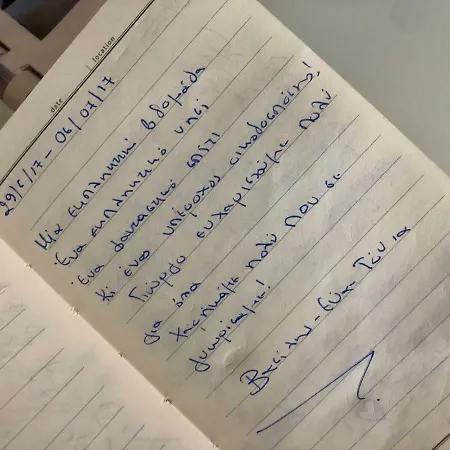 date
location
29/6/17 - 06/07/17
Μία εκπληκτική βδομάδα
Ένα εκπληκτικό νησί
Ένα φανταστικό σπίτι
Κι ένας υπέροχος οικοδεσπότης!
Γιώργο ευχαριστούμε πολύ
για όλα
Χαρήκαμε πολύ που σε
γνωρίσαμε!
Βασίλης - Εύη